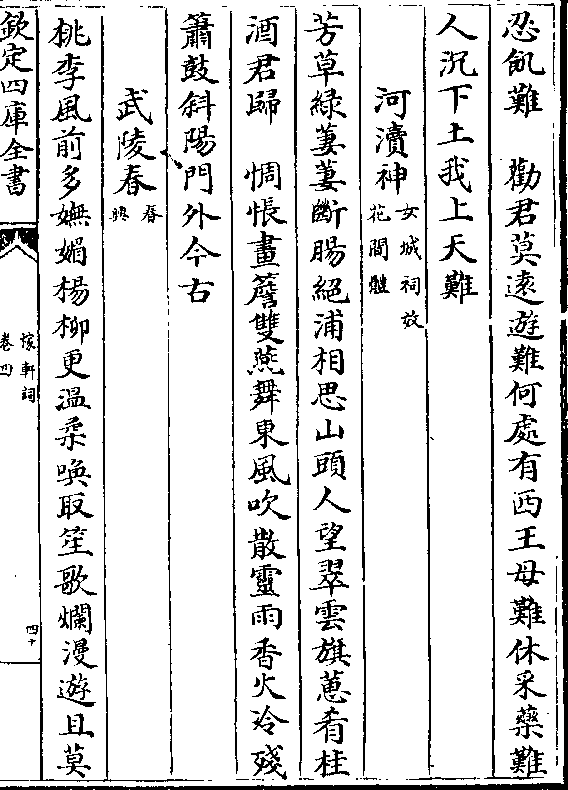 忍飢難　勸君莫逺逰難何處有西王母難休采藥難
人沉下土我上天難
河瀆神女城祠效花間體
芳草緑萋萋斷腸絶浦相思山頭人望翠雲旗蕙肴桂
酒君歸　惆悵畫簷雙燕舞東風吹散靈雨香火冷殘
簫鼓斜陽門外今古
武陵春
桃李風前多嫵媚楊柳更溫柔喚取笙歌爛漫遊且莫
欽定四庫全書
稼軒詞
卷四
四十